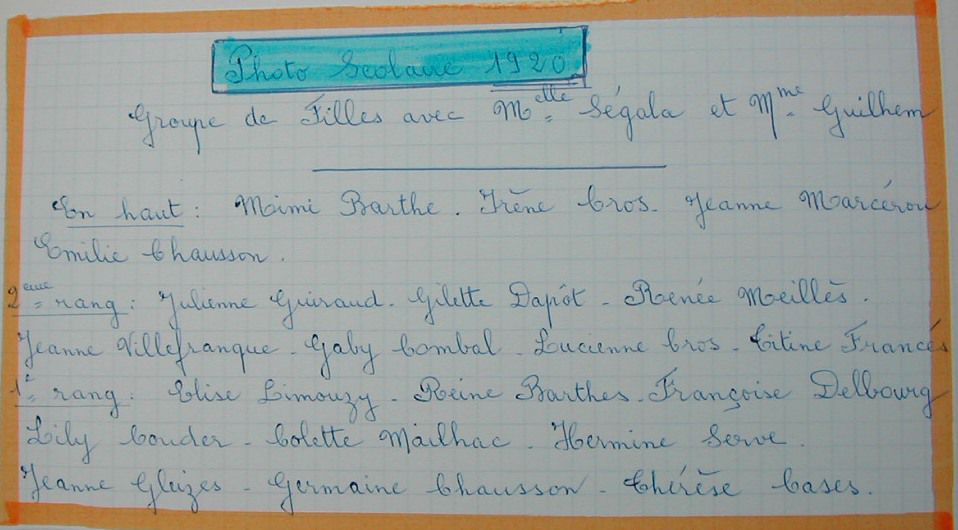 Photo Scolaire 1920
Groupe de Filles avec Melle Ségala et Mme Guilhem
En haut : Mimi Barthe. Irène Cros. Jeanne Marcérou
Emilie Chausson.
2eme rang : Julienne Guiraud. Gilette Dapót - Renée Meillès.
Jeanne Villefranque - Gaby Combal - Lucienne Cros - Titine Francés
1er rang : Elise Limouzy - Reine Barthes. Françoise Delbourg
Lily Couder - Colette Mailhac. Hermine Serve.
Jeanne Gleizes - Germaine Chausson - Thérèse Cases.